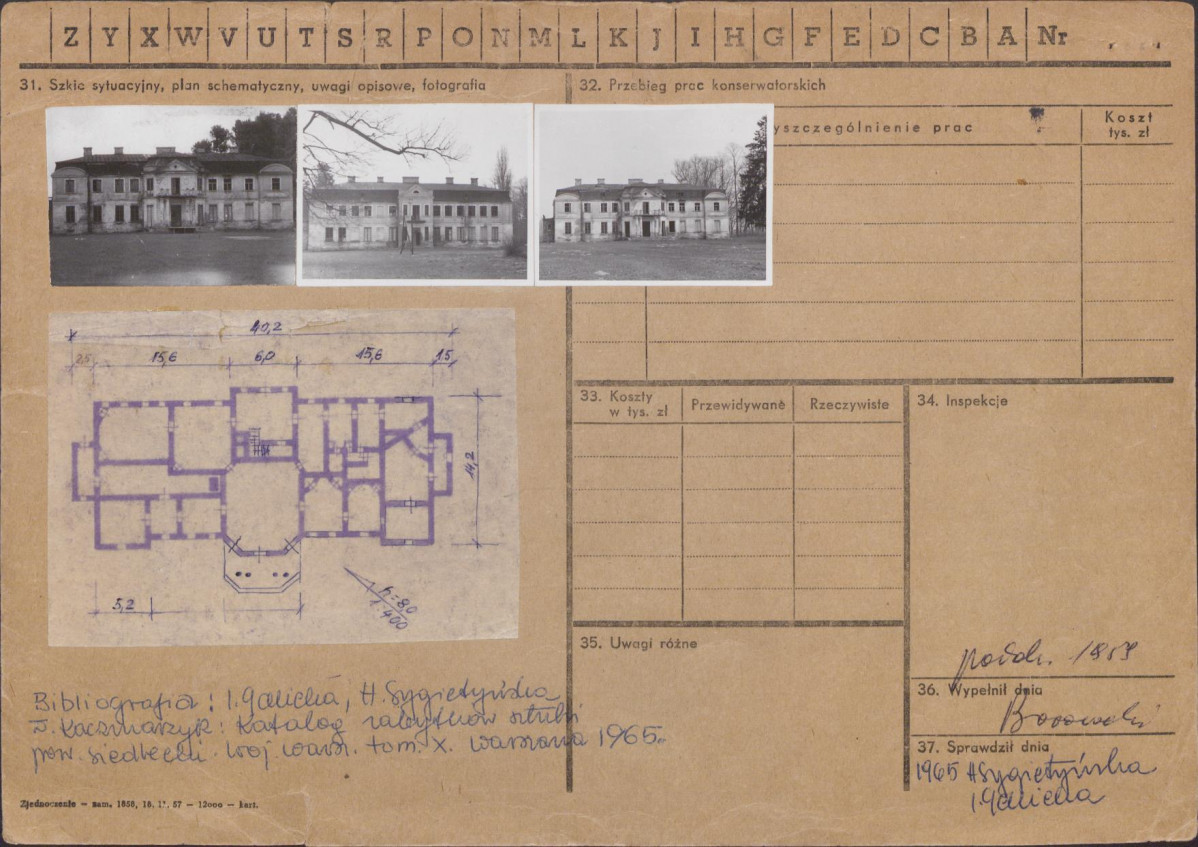 Z Y X W V U T S R P O N M L K J I H G F E D C B A Nr
31. Szkic sytuacyjny, plan schematyczny, uwagi opisowe, fotografia
32. Przebieg prac konserwatorskich
yszczególnienie prac
Koszt
tys. zł
40,2
2,5 15,6 6,0 15,6 1,5
14,2
5,2
h=8,0
1:400
33. Koszty
w tys. zł
Przewidywane
Rzeczywiste
34. Inspekcje
35. Uwagi różne
Bibliografia: I. Galicka, H. Sygietyńska
D. Kaczmarzyk: Katalog zabytków sztuki
pow. siedlecki woj. warsz. tom. X. Warszawa 1965.
paźdz. 1959
36. Wypełnił dnia
Borowski
37. Sprawdził dnia
1965 H Sygietyńska
I. Galicka
Zjednoczenie — zam. 1858, 16. 12. 57 — 12000 — kart.